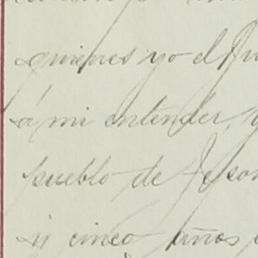 quienes yo el
á mi entender, y
pueblo de
cinco años